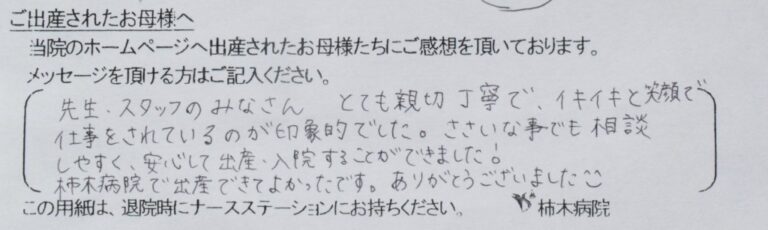 ご出産されたお母様へ
当院のホームページへ出産されたお母様たちにご感想を頂いております。
メッセージを頂ける方はご記入ください。
先生・スタッフのみなさん とても親切丁寧で、イキイキと笑顔で
仕事をされているのが印象的でした。ささいな事でも相談
しやすく、安心して出産・入院することができました!
柿木病院で出産できてよかったです。ありがとうございました
この用紙は、退院時にナースステーションにお持ちください。 柿木病院